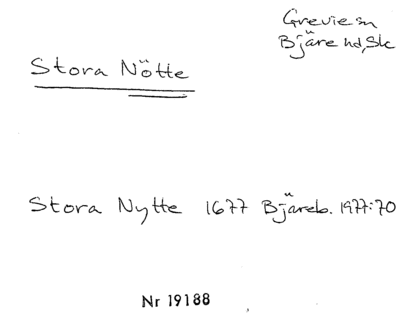 Grevie sn
Bjäre hd, Sk
Stora Nötte
Stora Nytte 1677 Bjäreb. 1977:70
Nr 19188